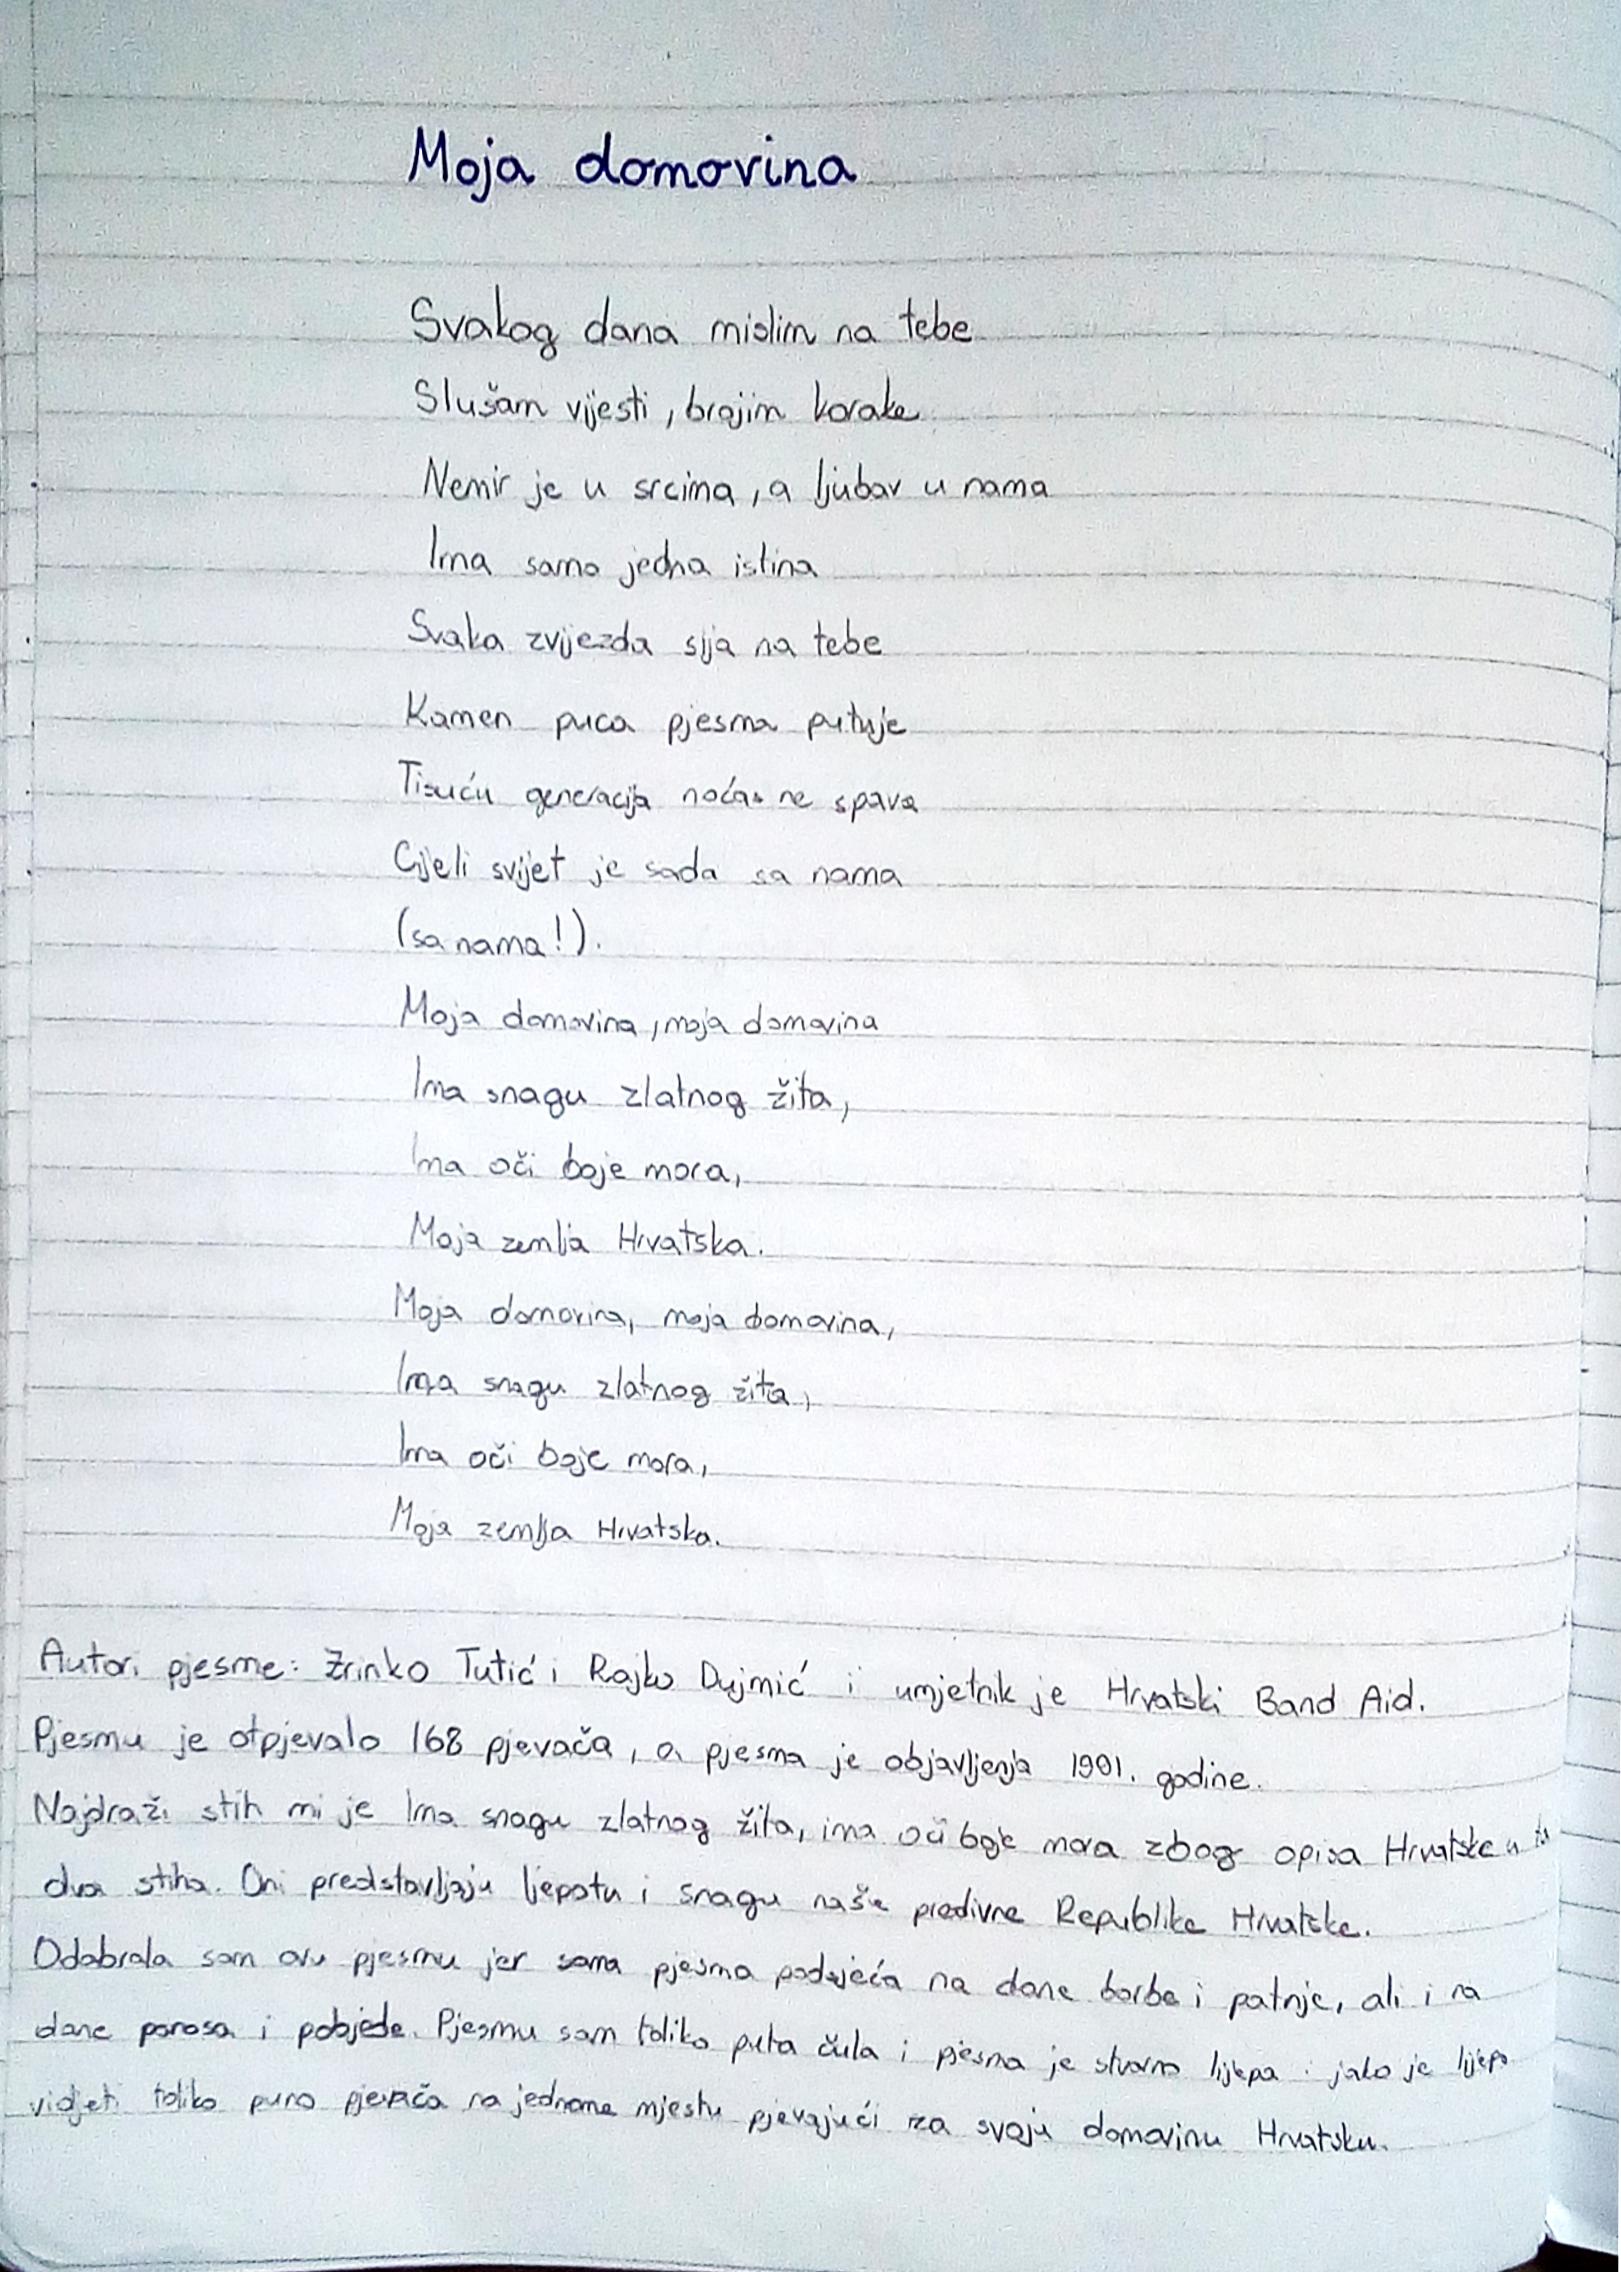 Moja domovina
Svakog dana mislim na tebe
Slušam vijesti, brojim korake
Nemir je u srcima, a ljubav u nama
Ima samo jedna istina
Svaka zvijezda sija na tebe
Kamen puca pjesma putuje
Tisuću generacija noćas ne spava
Cijeli svijet je sada sa nama
(sa nama!).
Moja domovina, moja domovina
Ima snagu zlatnog žita,
Ima oči boje mora,
Moja zemlja Hrvatska.
Moja domovina, moja domovina,
Ima snagu zlatnog žita,
Ima oči boje mora,
Moja zemlja Hrvatska.
Autori pjesme: Zrinko Tutić i Rajko Dujmić i umjetnik je Hrvatski Band Aid.
Pjesmu je otpjevalo 168 pjevača, a pjesma je objavljenja 1991. godine.
Najdraži stih mi je Ima snagu zlatnog žita, ima oči boje mora zbog opisa Hrvatske u ta
dva stiha. Oni predstavljaju ljepotu i snagu naše predivne Republike Hrvatske.
Odabrala sam ovu pjesmu jer sama pjesma podsjeća na dane borbe i patnje, ali i na
dane ponosa i pobjede. Pjesmu sam toliko puta čula i pjesma je stvarno lijepa i jako je lijepo
vidjeti toliko puno pjevača na jednome mjestu pjevajući za svoju domovinu Hrvatsku.